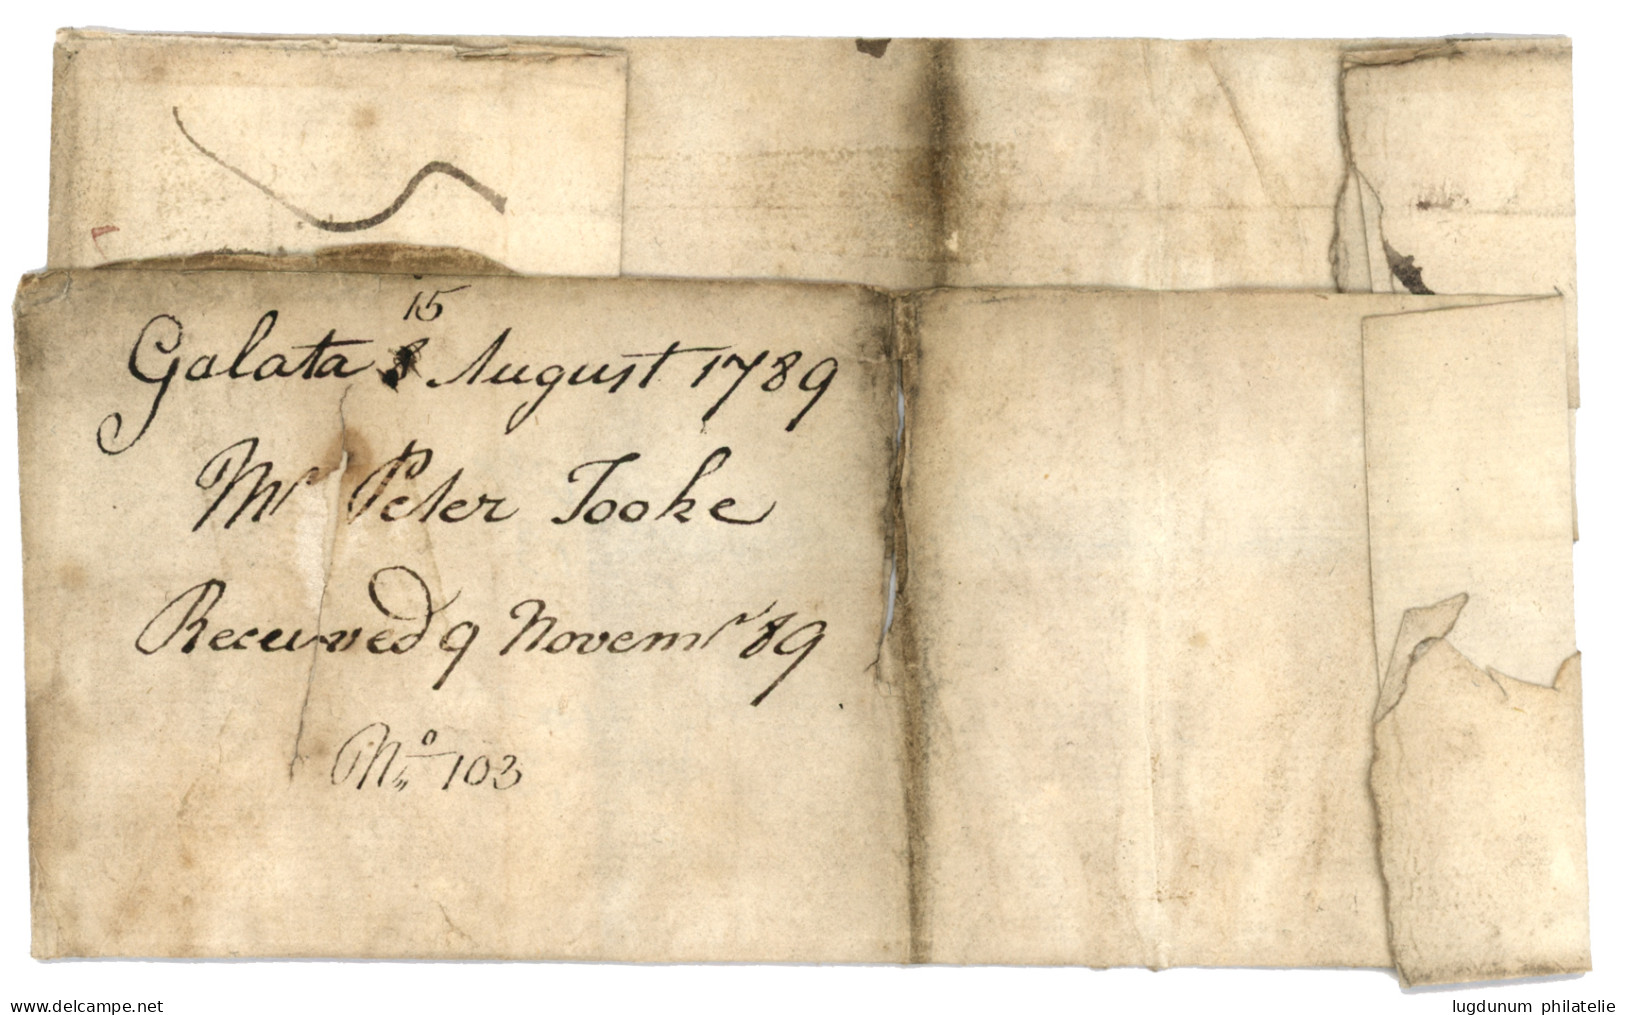 15
Galata 8 August 1789
Mr Peter Tooke
Received 9 Novemr 89
No 103
delcampe.net
lugdunum philatelie